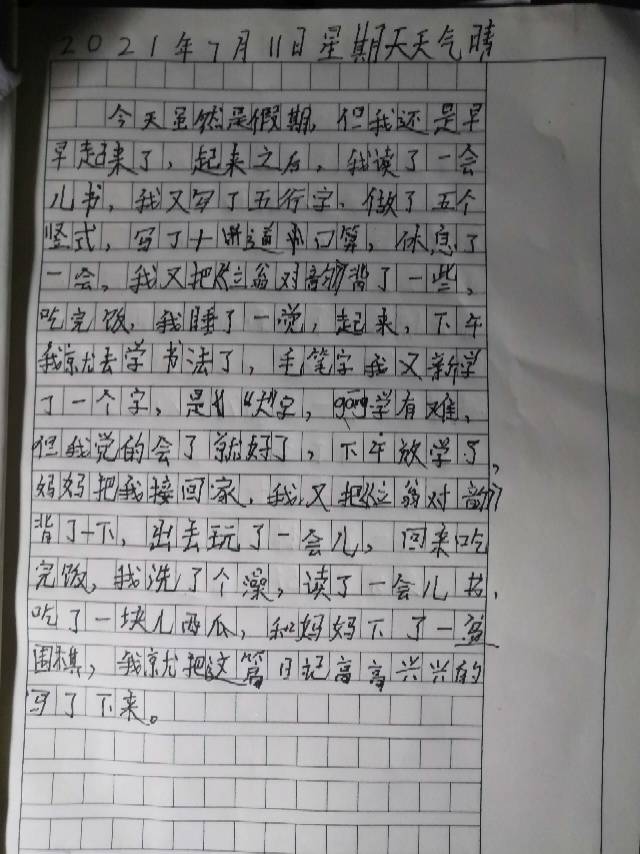 2021年7月11日星期天天气晴
今天虽然是假期,但我还是早
早起来了,起来之后,我读了一会
儿书,我又写了五行字,做了五个
竖式,写了十道口算,休息了
一会,我又把《笠翁对韵》背了一些,
吃完饭,我睡了一觉,起来,下午
我就去学书法了,毛笔字我又新学
了一个字,是“犬”字,gāng学有难,
但我觉的会了就好了,下午放学了,
妈妈把我接回家,我又把《笠翁对韵》
背了一下,出去玩了一会儿,回来吃
完饭,我洗了个澡,读了一会儿书,
吃了一块儿西瓜,和妈妈下了一盆
围棋,我就把这篇日记高高兴兴的
写了下来。